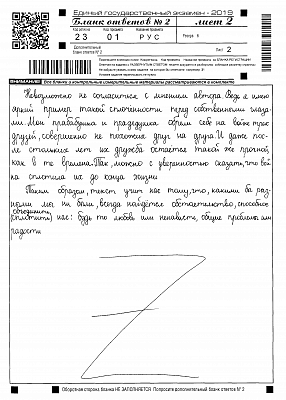 Единый государственный экзамен - 2019
Бланк ответов № 2 лист 2
Код региона Код предмета Название предмета
23 01 РУС Резерв - 6
Дополнительный бланк ответов № 2
Лист 2
ВНИМАНИЕ! Все бланки и контрольные измерительные материалы рассматриваются в комплекте
Невозможно не согласиться с мнением автора. Ведь я имею
яркий пример такой сплочённости перед собственными глаза-
ми. Мои прабабушка и прадедушка обрели себе на войне трёх
друзей, совершенно не похожих друг на друга. И даже пос-
ле стольких лет их дружба остаётся такой же прочной,
как в те времена. Так, можно с уверенностью сказать, что вой-
на сплотила их до конца жизни
Таким образом, текст учит нас тому, что, какими бы раз-
ными мы ни были, всегда найдётся обстоятельство, способное
объединить
(сплотить) нас: будь то любовь или ненависть, общие проблемы или
радости
Оборотная сторона бланка НЕ ЗАПОЛНЯЕТСЯ. Попросите дополнительный бланк ответов № 2